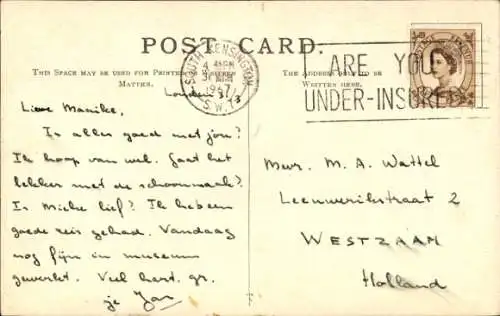 POST CARD.
THIS SPACE MAY BE USED FOR PRINTED OR WRITTEN
MATTER.
THE ADDRESS ONLY TO BE
WRITTEN HERE.
SOUTH KENSINGTON
S.W.7
ARE YOU
UNDER-INSURED
POSTAGE REVENUE
Londen
Lieve Marijke,
Is alles goed met jou?
Ik hoop van wel. Gaat het
lekker met de schoonmaak?
Is Mieke lief? Ik heb een
goede reis gehad. Vandaag
nog fijn in museum
gewerkt. Veel hart. gr.
je Jan
Mevr. M. A. Wattel
Leeuwerikstraat 2
WESTZAAN
Holland